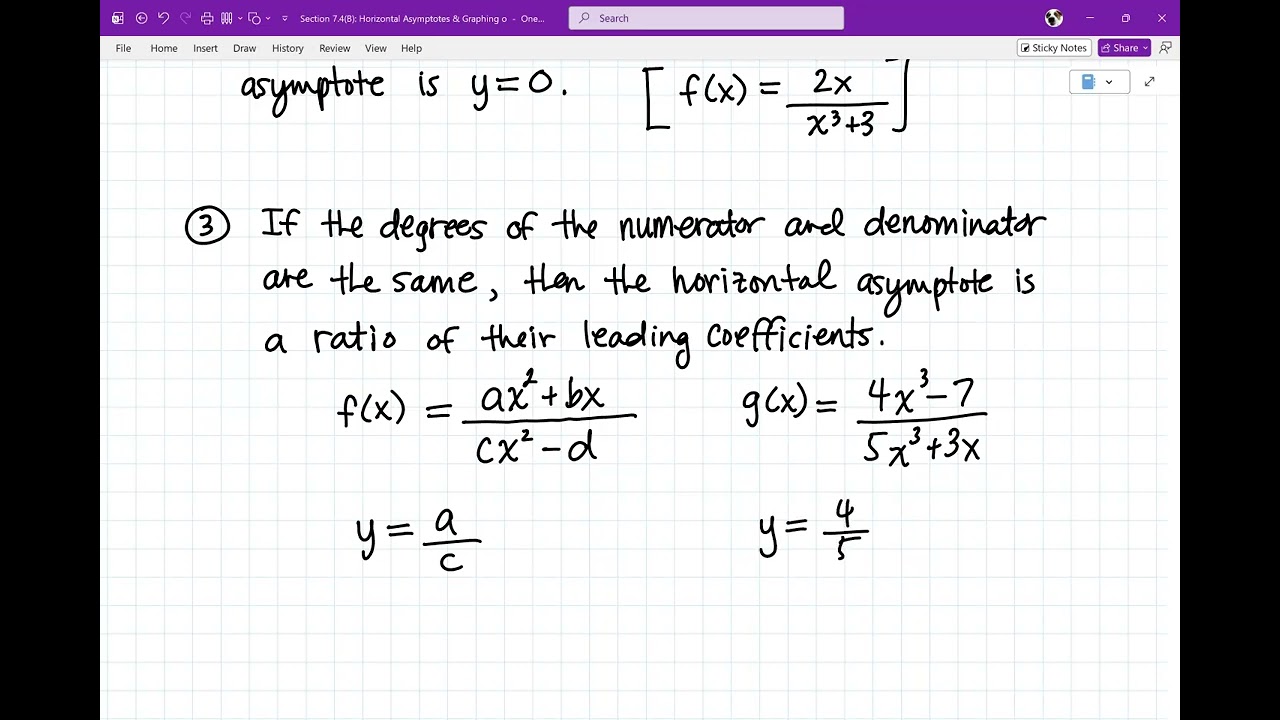 Section 7.4(B): Horizontal Asymptotes & Graphing o - One...
Search
File Home Insert Draw History Review View Help
Sticky Notes Share
asymptote is y=0. [f(x) = 2x / x³+3]
③ If the degrees of the numerator and denominator
are the same, then the horizontal asymptote is
a ratio of their leading coefficients.
f(x) = ax²+bx / cx²-d g(x) = 4x³-7 / 5x³+3x
y = a/c y = 4/5